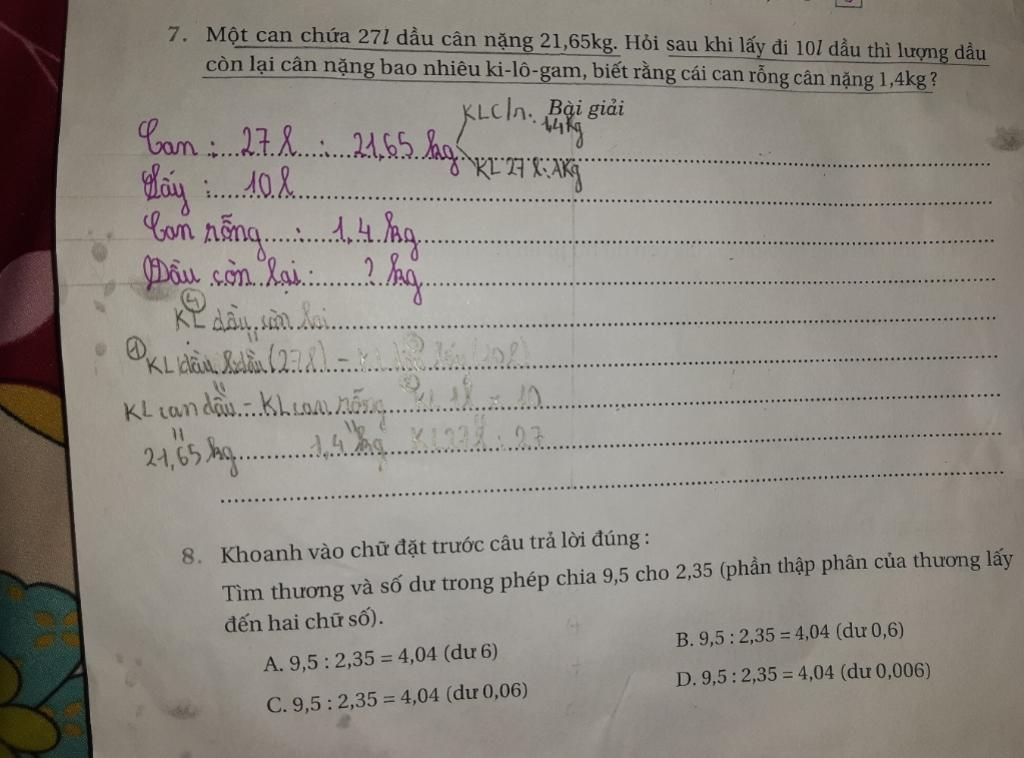 7. Một can chứa 27l dầu cân nặng 21,65kg. Hỏi sau khi lấy đi 10l dầu thì lượng dầu
còn lại cân nặng bao nhiêu ki-lô-gam, biết rằng cái can rỗng cân nặng 1,4kg?
Bài giải
KLC/r: 1,4kg
Can : 27 l : 21,65 kg
KL 27 l:
Lấy : 10 l
Can rỗng : 1,4 kg
Dầu còn lại : ? kg
4
KL dầu còn lại
=
1 KL dầu (27 l) - KL dầu lấy (10 l)
=
KL can dầu - KL can rỗng KL 1l x 10
= =
21,65 kg 1,4 kg KL 27 l : 27
8. Khoanh vào chữ đặt trước câu trả lời đúng :
Tìm thương và số dư trong phép chia 9,5 cho 2,35 (phần thập phân của thương lấy
đến hai chữ số).
A. 9,5 : 2,35 = 4,04 (dư 6)
B. 9,5 : 2,35 = 4,04 (dư 0,6)
C. 9,5 : 2,35 = 4,04 (dư 0,06)
D. 9,5 : 2,35 = 4,04 (dư 0,006)